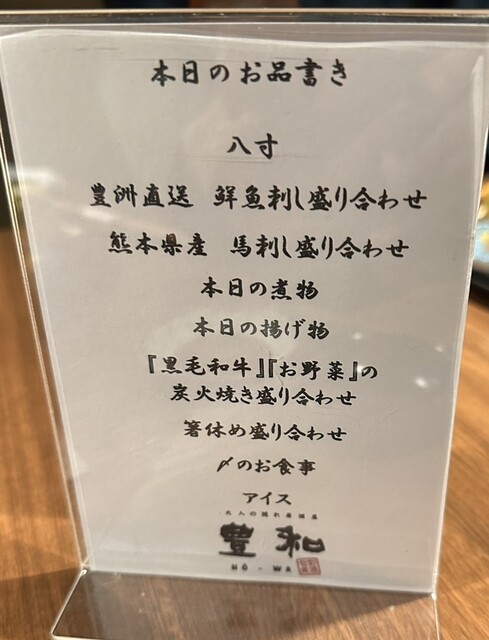 本日のお品書き
八寸
豊洲直送 鮮魚刺し盛り合わせ
熊本県産 馬刺し盛り合わせ
本日の煮物
本日の揚げ物
『黒毛和牛』『お野菜』の
炭火焼き盛り合わせ
箸休め盛り合わせ
〆のお食事
アイス
大人の隠れ居酒屋
豊和
HŌ-WA